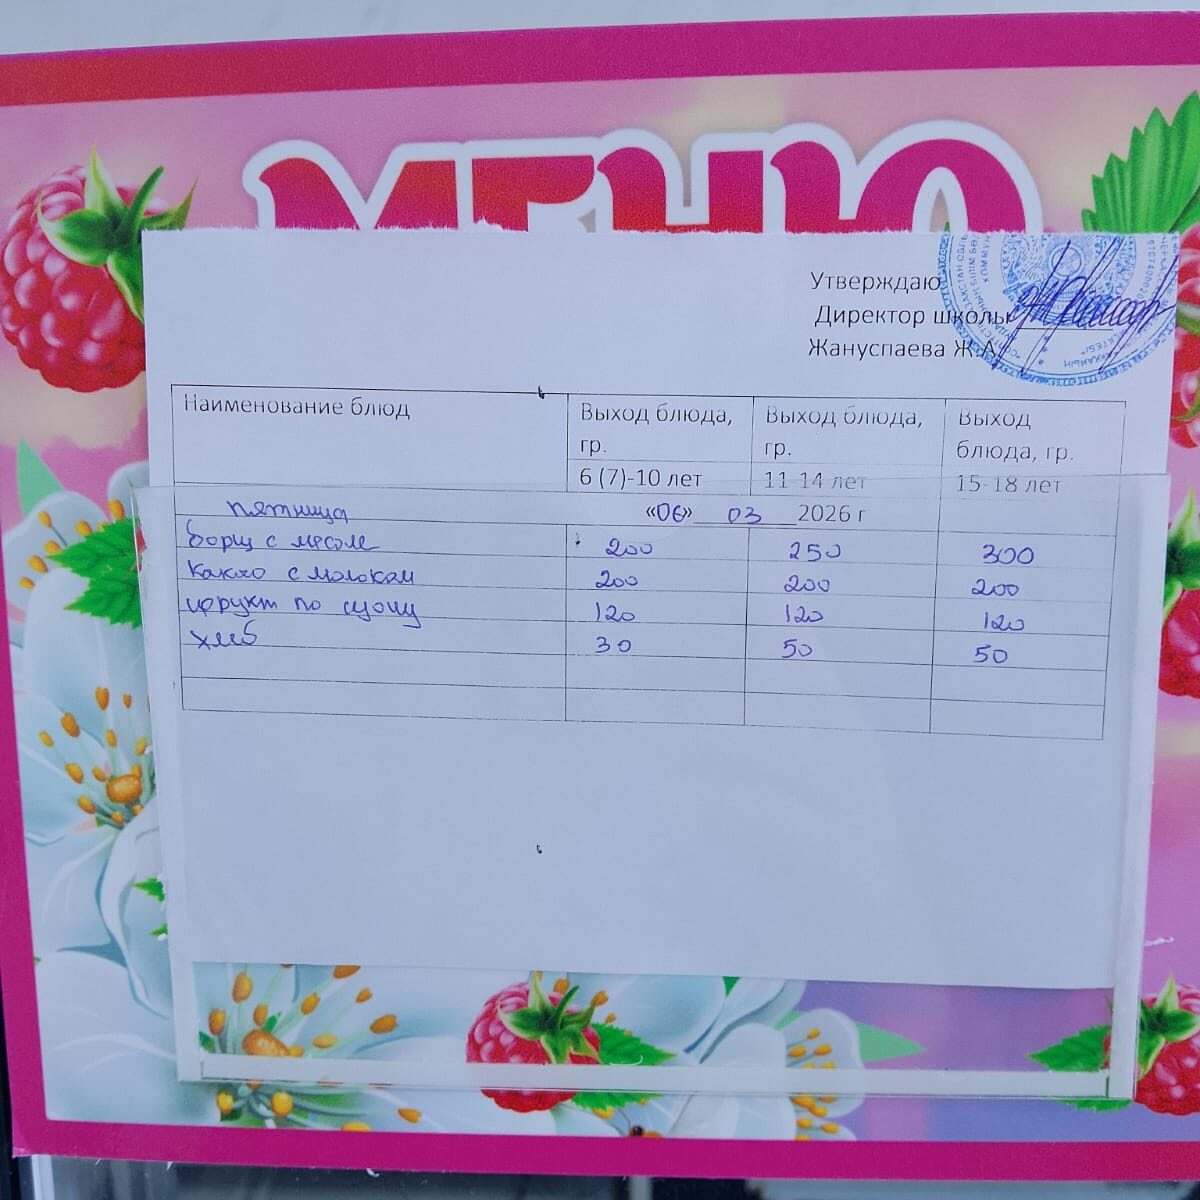 МЕНЮ
Утверждаю
Директор школы
Жануспаева Ж.А
Наименование блюд Выход блюда, гр. Выход блюда, гр. Выход блюда, гр.
6 (7)-10 лет 11-14 лет 15-18 лет
пятница «06» 03 2026 г
борщ с мясом 200 250 300
Какао с молоком 200 200 200
фрукт по сезону 120 120 120
хлеб 30 50 50